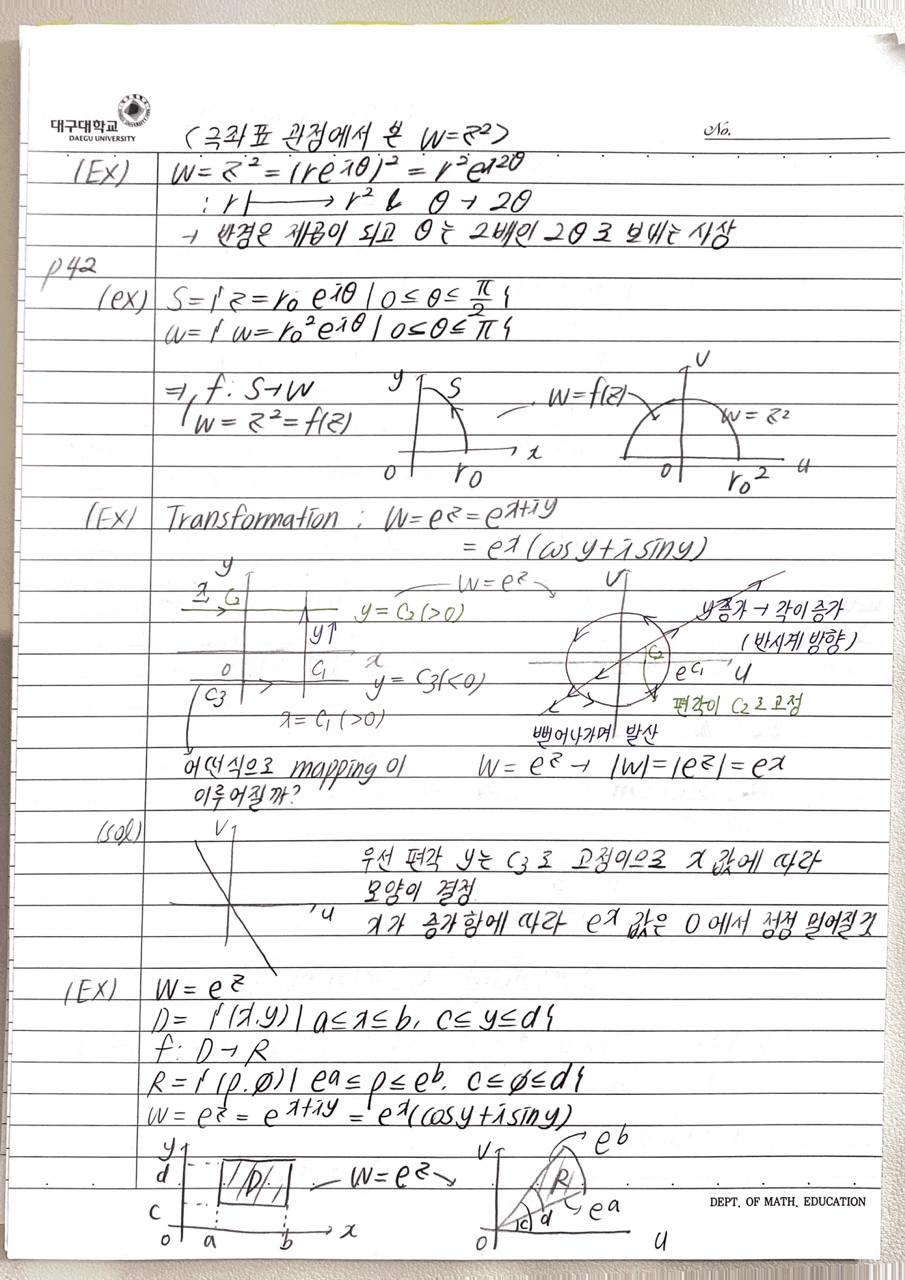 대구대학교
DAEGU UNIVERSITY
(극좌표 관점에서 본 W=Z²)
No.
(Ex) W = Z² = (re^iθ)² = r²e^i2θ
: r ↦ r² & θ → 2θ
→ 반경은 제곱이 되고 θ는 2배인 2θ로 보내는 사상
p42
(ex) S = { z = r₀ e^iθ | 0 ≤ θ ≤ π/2 }
W = { w = r₀² e^iθ | 0 ≤ θ ≤ π }
⇒ f: S → W
W = Z² = f(z)
y S x 0 r₀
W = f(z)
V W = Z² 0 r₀² u
(Ex) Transformation : W = e^z = e^x+iy
= e^x (cos y + i sin y)
y x C₂ y = C₂ (>0)
W = e^z
V y증가 → 각이 증가
(반시계 방향)
y↑
0 C₁ x
C₃ y = C₃ (<0)
C₂ e^C₁ u
x = C₁ (>0)
편각이 C₂로 고정
뻗어나가며 발산
어떤식으로 mapping이
이루어질까?
W = e^z → |W| = |e^z| = e^x
(sol) V u
우선 편각 y는 C₃로 고정이므로 x 값에 따라
모양이 결정
x가 증가함에 따라 e^x 값은 0에서 점점 멀어질것
(Ex) W = e^z
D = { (x.y) | a ≤ x ≤ b, c ≤ y ≤ d }
f: D → R
R = { (ρ.φ) | e^a ≤ ρ ≤ e^b, c ≤ φ ≤ d }
W = e^z = e^x+iy = e^x (cos y + i sin y)
y d c D 0 a b x
W = e^z
V e^b R e^a c d 0 u
DEPT. OF MATH. EDUCATION